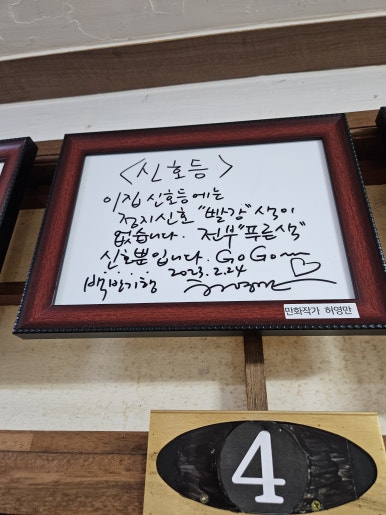 <신호등>
이집 신호등에는
정지신호 "빨강"색이
없습니다. 전부 "푸른색"
신호뿐입니다. Go Go
백반기행 2023.2.24
만화작가 허영만
4